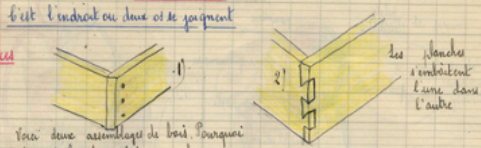 C'est l'endroit ou deux os se joignent
1)
2)
Les planches
s'emboîtent
l'une dans
l'autre
Voici deux assemblages de bois. Pourquoi